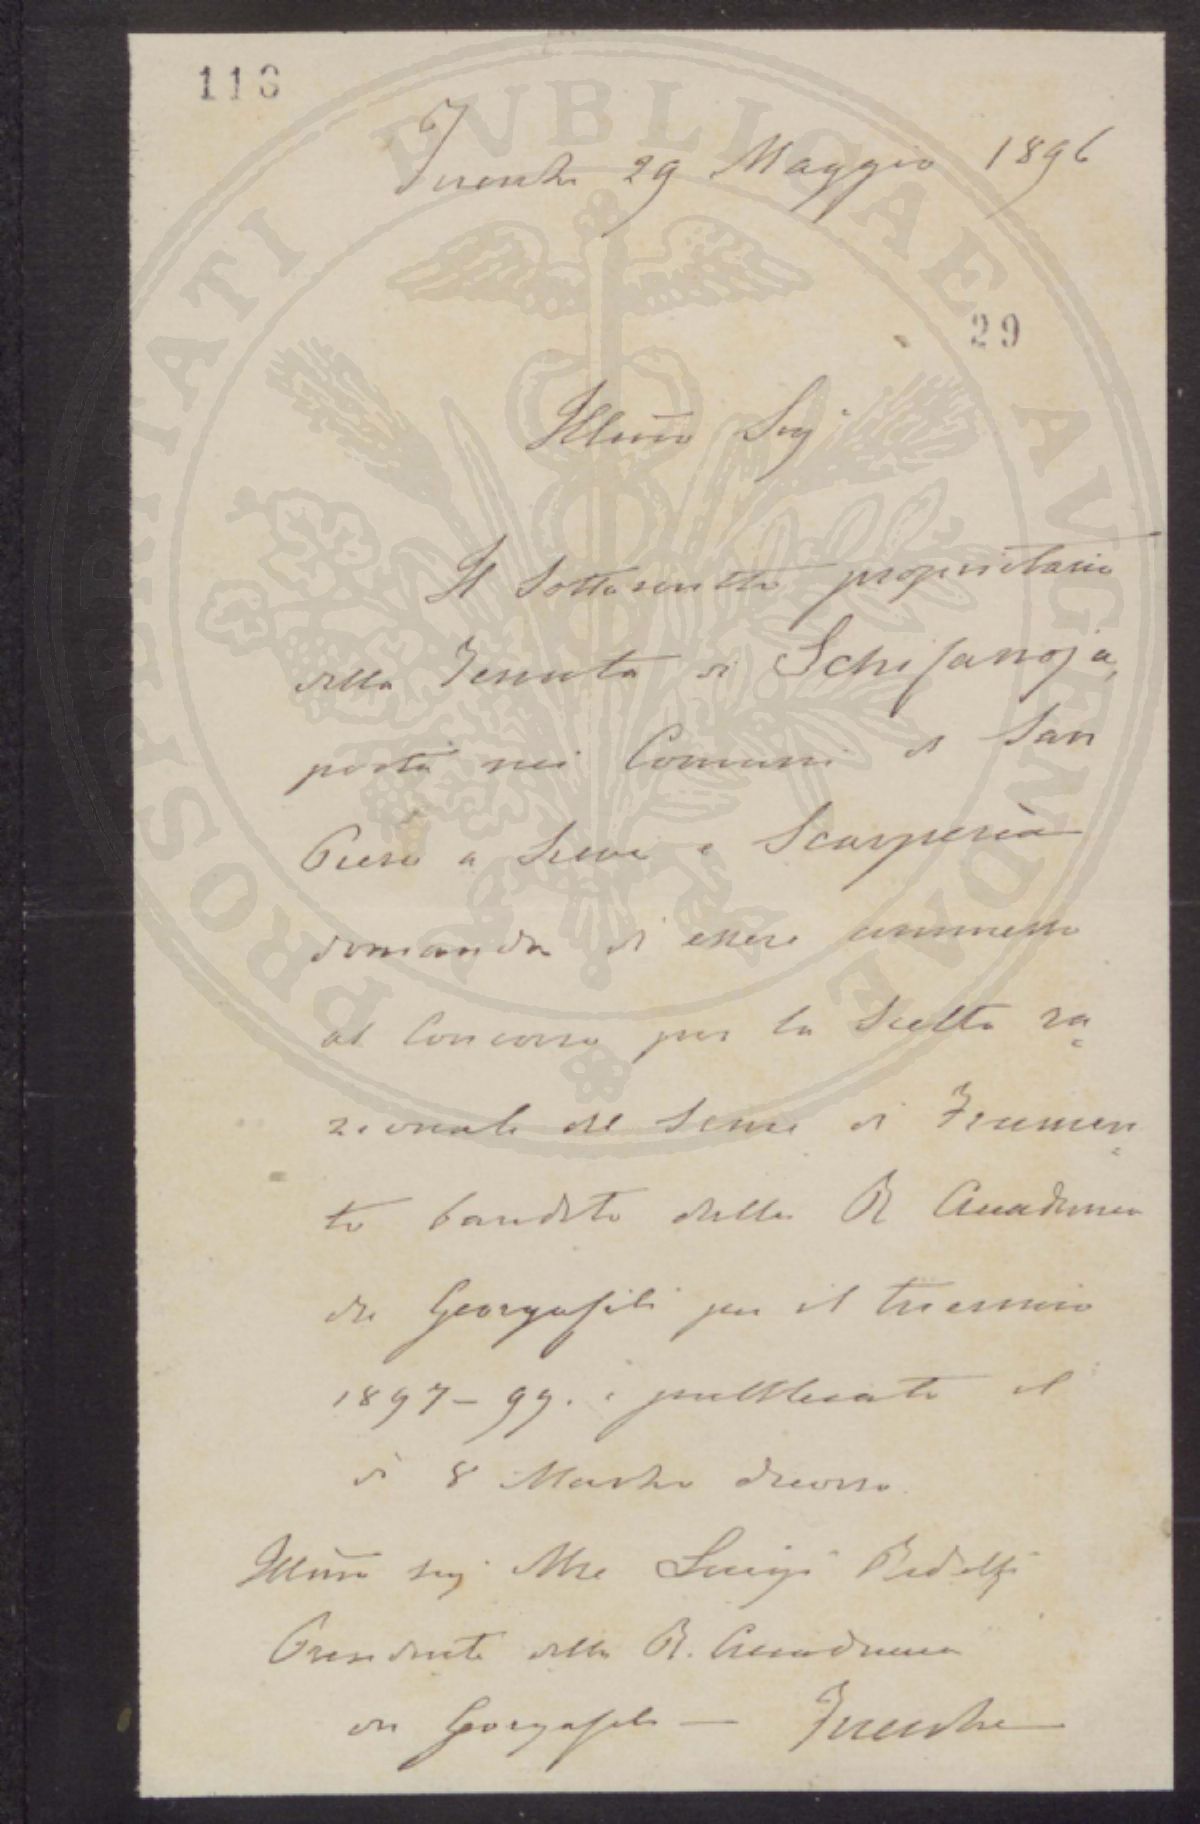 113
Firenze 29 Maggio 1896
29
Illmo Sig
Il sottoscritto proprietario
della Tenuta di Schifanoja,
posta nei Comuni di San
Piero a Sieve e Scarperia
domanda di essere ammesso
al Concorso per la Scelta ra=
zionale del Seme di Frumen=
to bandito dalla R Accademia
dei Georgofili per il triennio
1897-99. e pubblicato il
dì 8 Marzo decorso.
Illmo Sig Mse Luigi Ridolfi
Presidente della R. Accademia
dei Georgofili — Firenze
PROSPERITATI PVBLICAE AVGENDAE